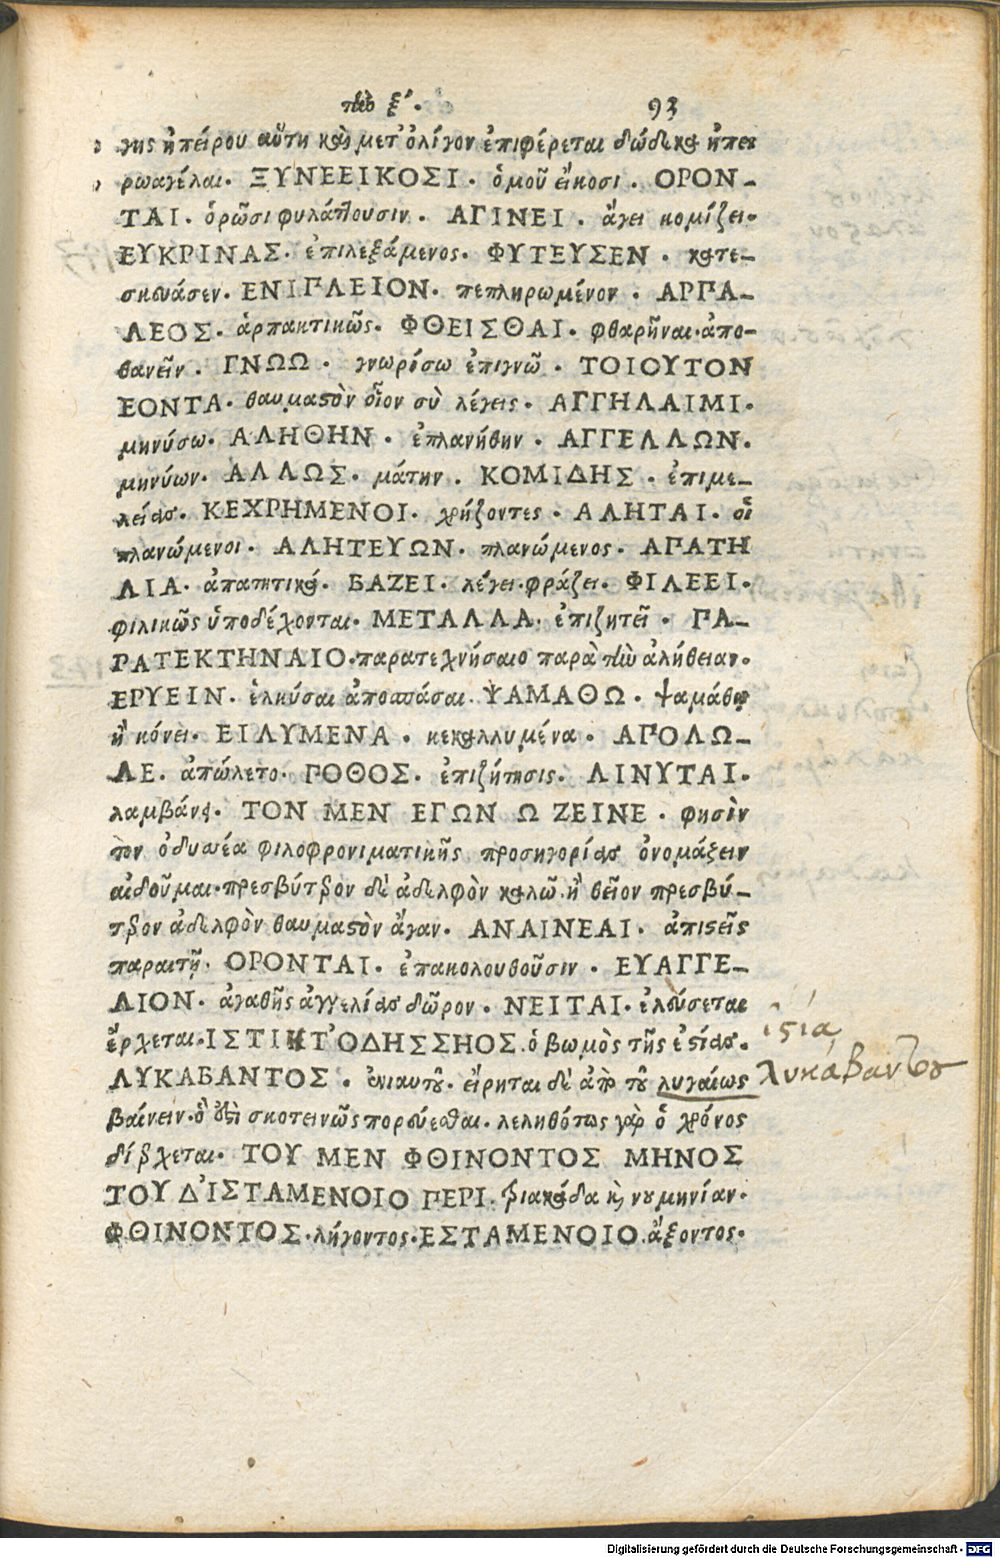 εἰς τὸ ξ΄. 93
γης ἠπείρου αὕτη καὶ μετ᾽ ὀλίγον ἐπιφέρεται δώδεκα ἠπει
ρωαγέλαι· ΞΥΝΕΕΙΚΟΣΙ· ὁμοῦ εἴκοσι. ΟΡΟΝ-
ΤΑΙ. ὁρῶσι φυλάττουσιν. ΑΓΙΝΕΙ. ἄγει κομίζει·
ΕΥΚΡΙΝΑΣ· ἐπιλεξάμενος. ΦΥΤΕΥΣΕΝ. κατε-
σκεύασεν. ΕΝΙΠΛΕΙΟΝ. πεπληρωμένον. ΑΡΠΑ-
ΛΕΟΣ. ἁρπακτικῶς. ΦΘΕΙΣΘΑΙ. φθαρῆναι·ἀπο-
θανεῖν. ΓΝΩΩ. γνωρίσω ἐπιγνῶ. ΤΟΙΟΥΤΟΝ
ΕΟΝΤΑ. θαυμαστὸν οἷον σὺ λέγεις. ΑΓΓΗΛΑΙΜΙ.
μηνύσω. ΑΛΗΘΗΝ. ἐπλανήθην. ΑΓΓΕΛΛΩΝ.
μηνύων. ΑΛΛΩΣ. μάτην. ΚΟΜΙΔΗΣ. ἐπιμε-
λείας. ΚΕΧΡΗΜΕΝΟΙ. χρήζοντες. ΑΛΗΤΑΙ. οἱ
πλανώμενοι. ΑΛΗΤΕΥΩΝ. πλανώμενος. ΑΠΑΤΗ
ΛΙΑ. ἀπατητικά. ΒΑΖΕΙ. λέγει·φράζει. ΦΙΛΕΕΙ.
φιλικῶς ὑποδέχονται. ΜΕΤΑΛΛΑ. ἐπιζητεῖ. ΠΑ-
ΡΑΤΕΚΤΗΝΑΙΟ·παρατεχνήσαιο παρὰ τὴν ἀλήθειαν.
ΕΡΥΕΙΝ. ἑλκύσαι ἀποσπάσαι. ΨΑΜΑΘΩ. ψαμάθῳ
ἢ κόνει. ΕΙΛΥΜΕΝΑ. κεκαλλυμένα. ΑΠΟΛΩ-
ΛΕ. ἀπώλετο. ΠΟΘΟΣ. ἐπιζήτησις. ΛΙΝΥΤΑΙ.
λαμβάνει. ΤΟΝ ΜΕΝ ΕΓΩΝ Ω ΖΕΙΝΕ. φησὶν
τὸν ὀδυσσέα φιλοφρονιματικῆς προσηγορίας ὀνομάξειν
αἰδοῦμαι·πρεσβύτερον δὲ ἀδελφὸν καλῶ. ἢ θεῖον πρεσβύ-
τερον ἀδελφὸν θαυμαστὸν ἄγαν. ΑΝΑΙΝΕΑΙ. ἀπιστεῖς
παραιτῇ. ΟΡΟΝΤΑΙ. ἐπακολουθοῦσιν. ΕΥΑΓΓΕ-
ΛΙΟΝ. ἀγαθῆς ἀγγελίας δῶρον. ΝΕΙΤΑΙ. ἐλεύσεται
ἔρχεται. ΙΣΤΙΗ Τ᾽ΟΔΗΣΣΗΟΣ. ὁ βωμὸς τῆς ἑστίας.
ἱστία,
ΛΥΚΑΒΑΝΤΟΣ. ἐνιαυτοῦ. εἴρηται δὲ ἀπὸ τοῦ λυγαίως
λυκάβαντου
βαίνειν·ὅ ἐστὶ σκοτεινῶς πορεύεσθαι. λεληθότως γὰρ ὁ χρόνος
διέρχεται. ΤΟΥ ΜΕΝ ΦΘΙΝΟΝΤΟΣ ΜΗΝΟΣ
ΤΟΥ Δ᾽ΙΣΤΑΜΕΝΟΙΟ ΠΕΡΙ. τριακάδα καὶ νουμηνίαν.
ΦΘΙΝΟΝΤΟΣ·λήγοντος·ΕΣΤΑΜΕΝΟΙΟ.ἄξοντος.
Digitalisierung gefördert durch die Deutsche Forschungsgemeinschaft - DFG